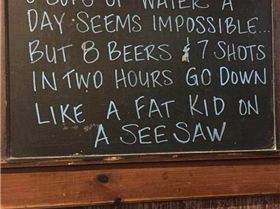 CUPS OF WATER A
DAY SEEMS IMPOSSIBLE...
BUT 8 BEERS & 7 SHOTS
IN TWO HOURS GO DOWN
LIKE A FAT KID ON
A SEE SAW